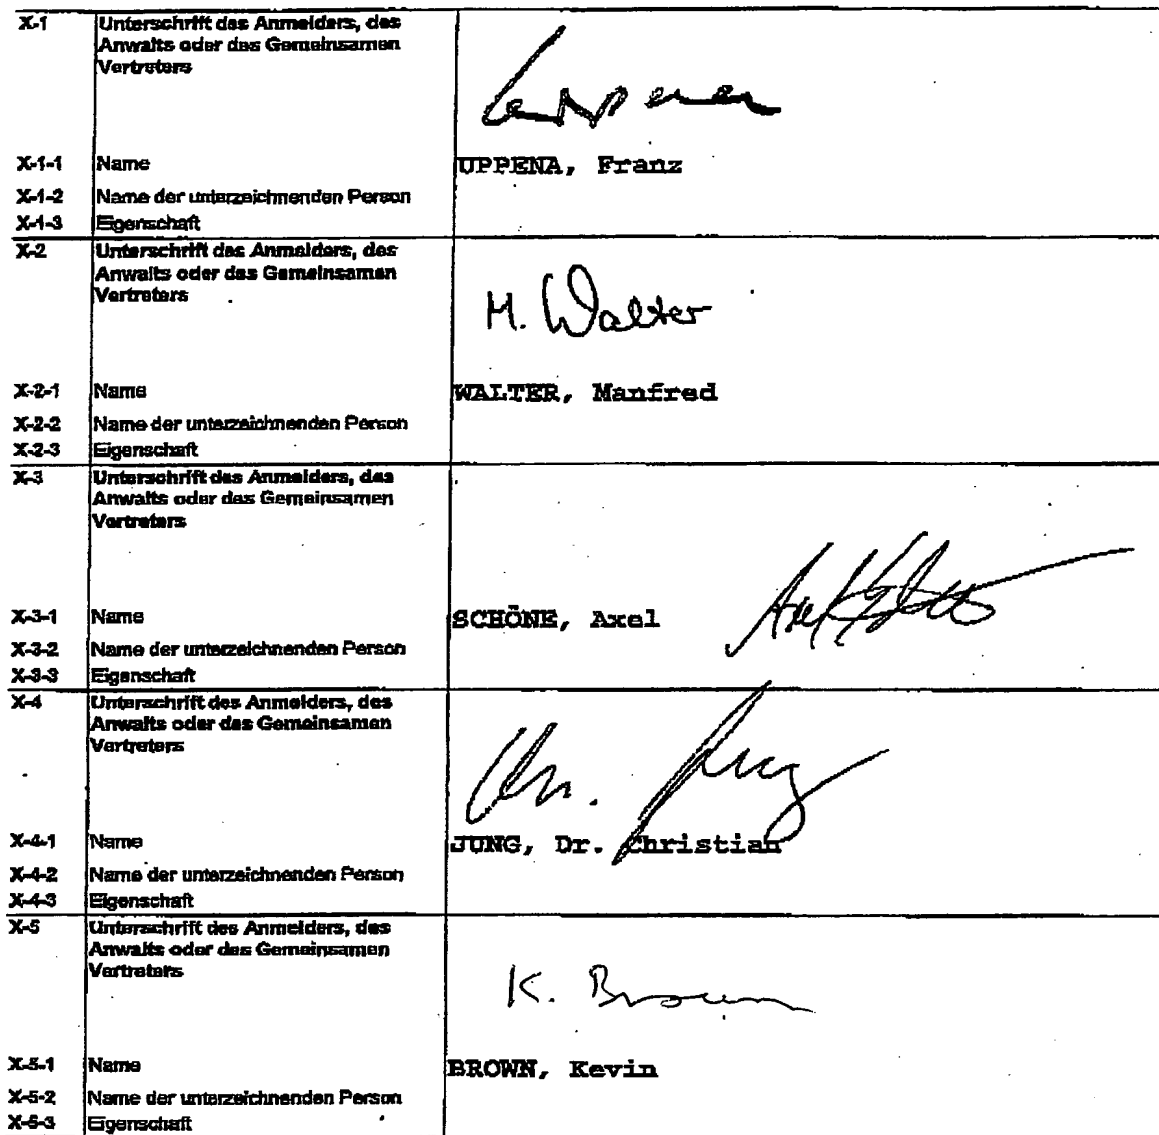 X-1 Unterschrift des Anmelders, des
Anwalts oder des Gemeinsamen
Vertreters
X-1-1 Name UPPENA, Franz
X-1-2 Name der unterzeichnenden Person
X-1-3 Eigenschaft
X-2 Unterschrift des Anmelders, des
Anwalts oder des Gemeinsamen
Vertreters
M. Walter
X-2-1 Name WALTER, Manfred
X-2-2 Name der unterzeichnenden Person
X-2-3 Eigenschaft
X-3 Unterschrift des Anmelders, des
Anwalts oder des Gemeinsamen
Vertreters
X-3-1 Name SCHÖNE, Axel Axel
X-3-2 Name der unterzeichnenden Person
X-3-3 Eigenschaft
X-4 Unterschrift des Anmelders, des
Anwalts oder des Gemeinsamen
Vertreters
Chr. Jung
X-4-1 Name JUNG, Dr. Christian
X-4-2 Name der unterzeichnenden Person
X-4-3 Eigenschaft
X-5 Unterschrift des Anmelders, des
Anwalts oder des Gemeinsamen
Vertreters
K. Brown
X-5-1 Name BROWN, Kevin
X-5-2 Name der unterzeichnenden Person
X-5-3 Eigenschaft